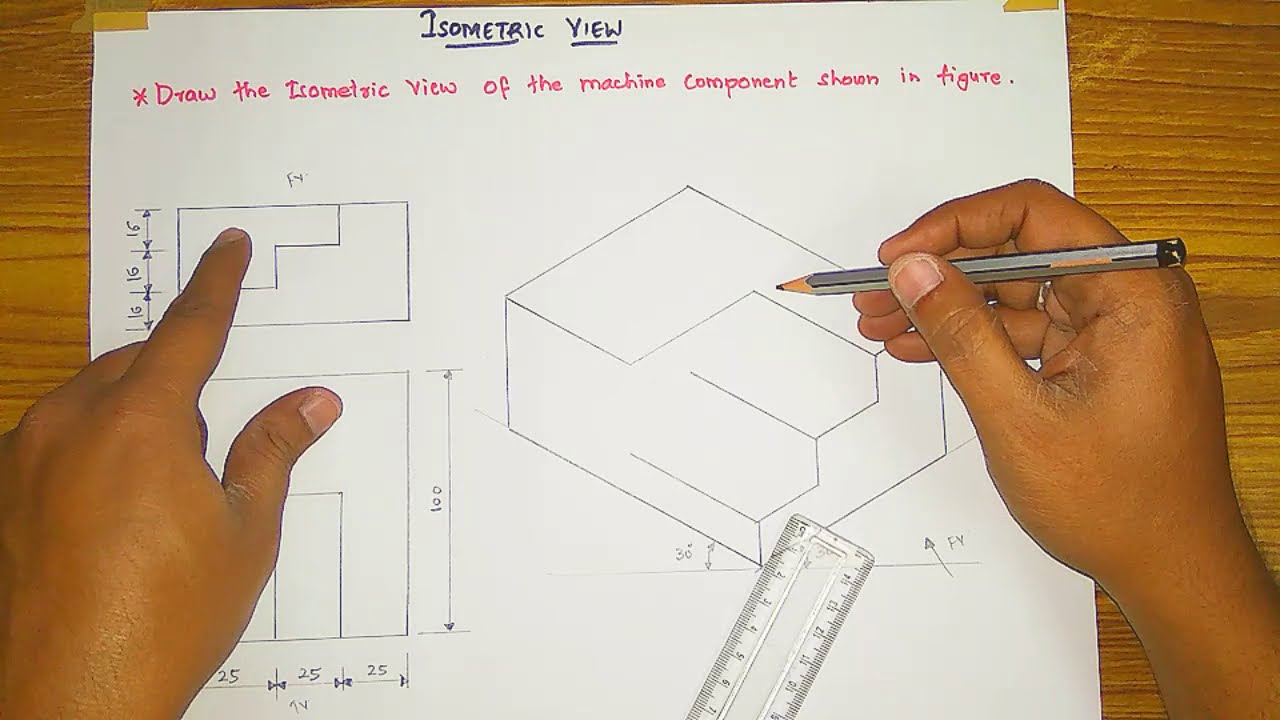 ISOMETRIC VIEW
* Draw the Isometric View of the machine component shown in figure.
FV
16
16
16
100
30°
FV
25 25 25
TV